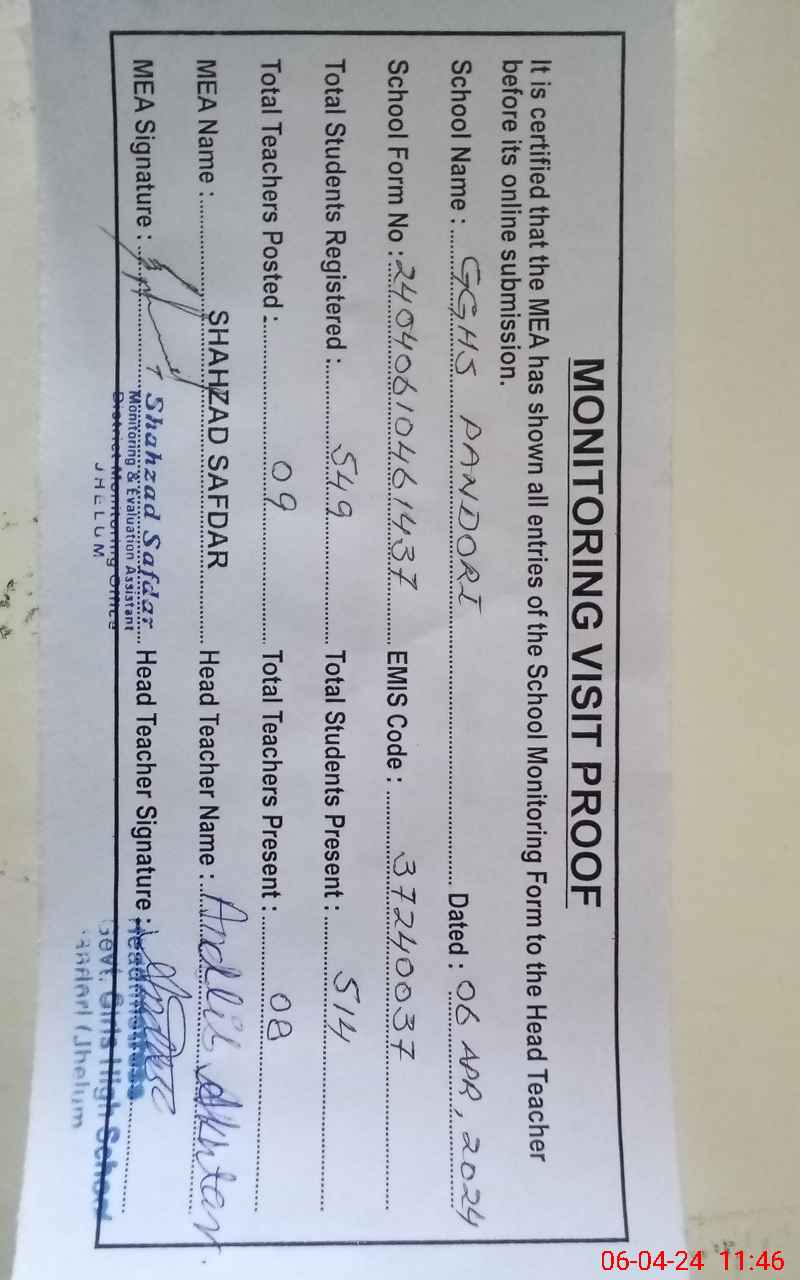 MONITORING VISIT PROOF
It is certified that the MEA has shown all entries of the School Monitoring Form to the Head Teacher
before its online submission.
School Name : GGHS PANDORI Dated : 06 APR, 2024
School Form No : 24040610461437 EMIS Code : 37240037
Total Students Registered : 549 Total Students Present : 514
Total Teachers Posted : 09 Total Teachers Present : 08
MEA Name : SHAHZAD SAFDAR Head Teacher Name : Andlib Akhtar
MEA Signature : Head Teacher Signature :
Shahzad Safdar
Monitoring & Evaluation Assistant
District Monitoring Office
JHELUM
Headmistress
Govt. Girls High School
Pandori (Jhelum
06-04-24 11:46